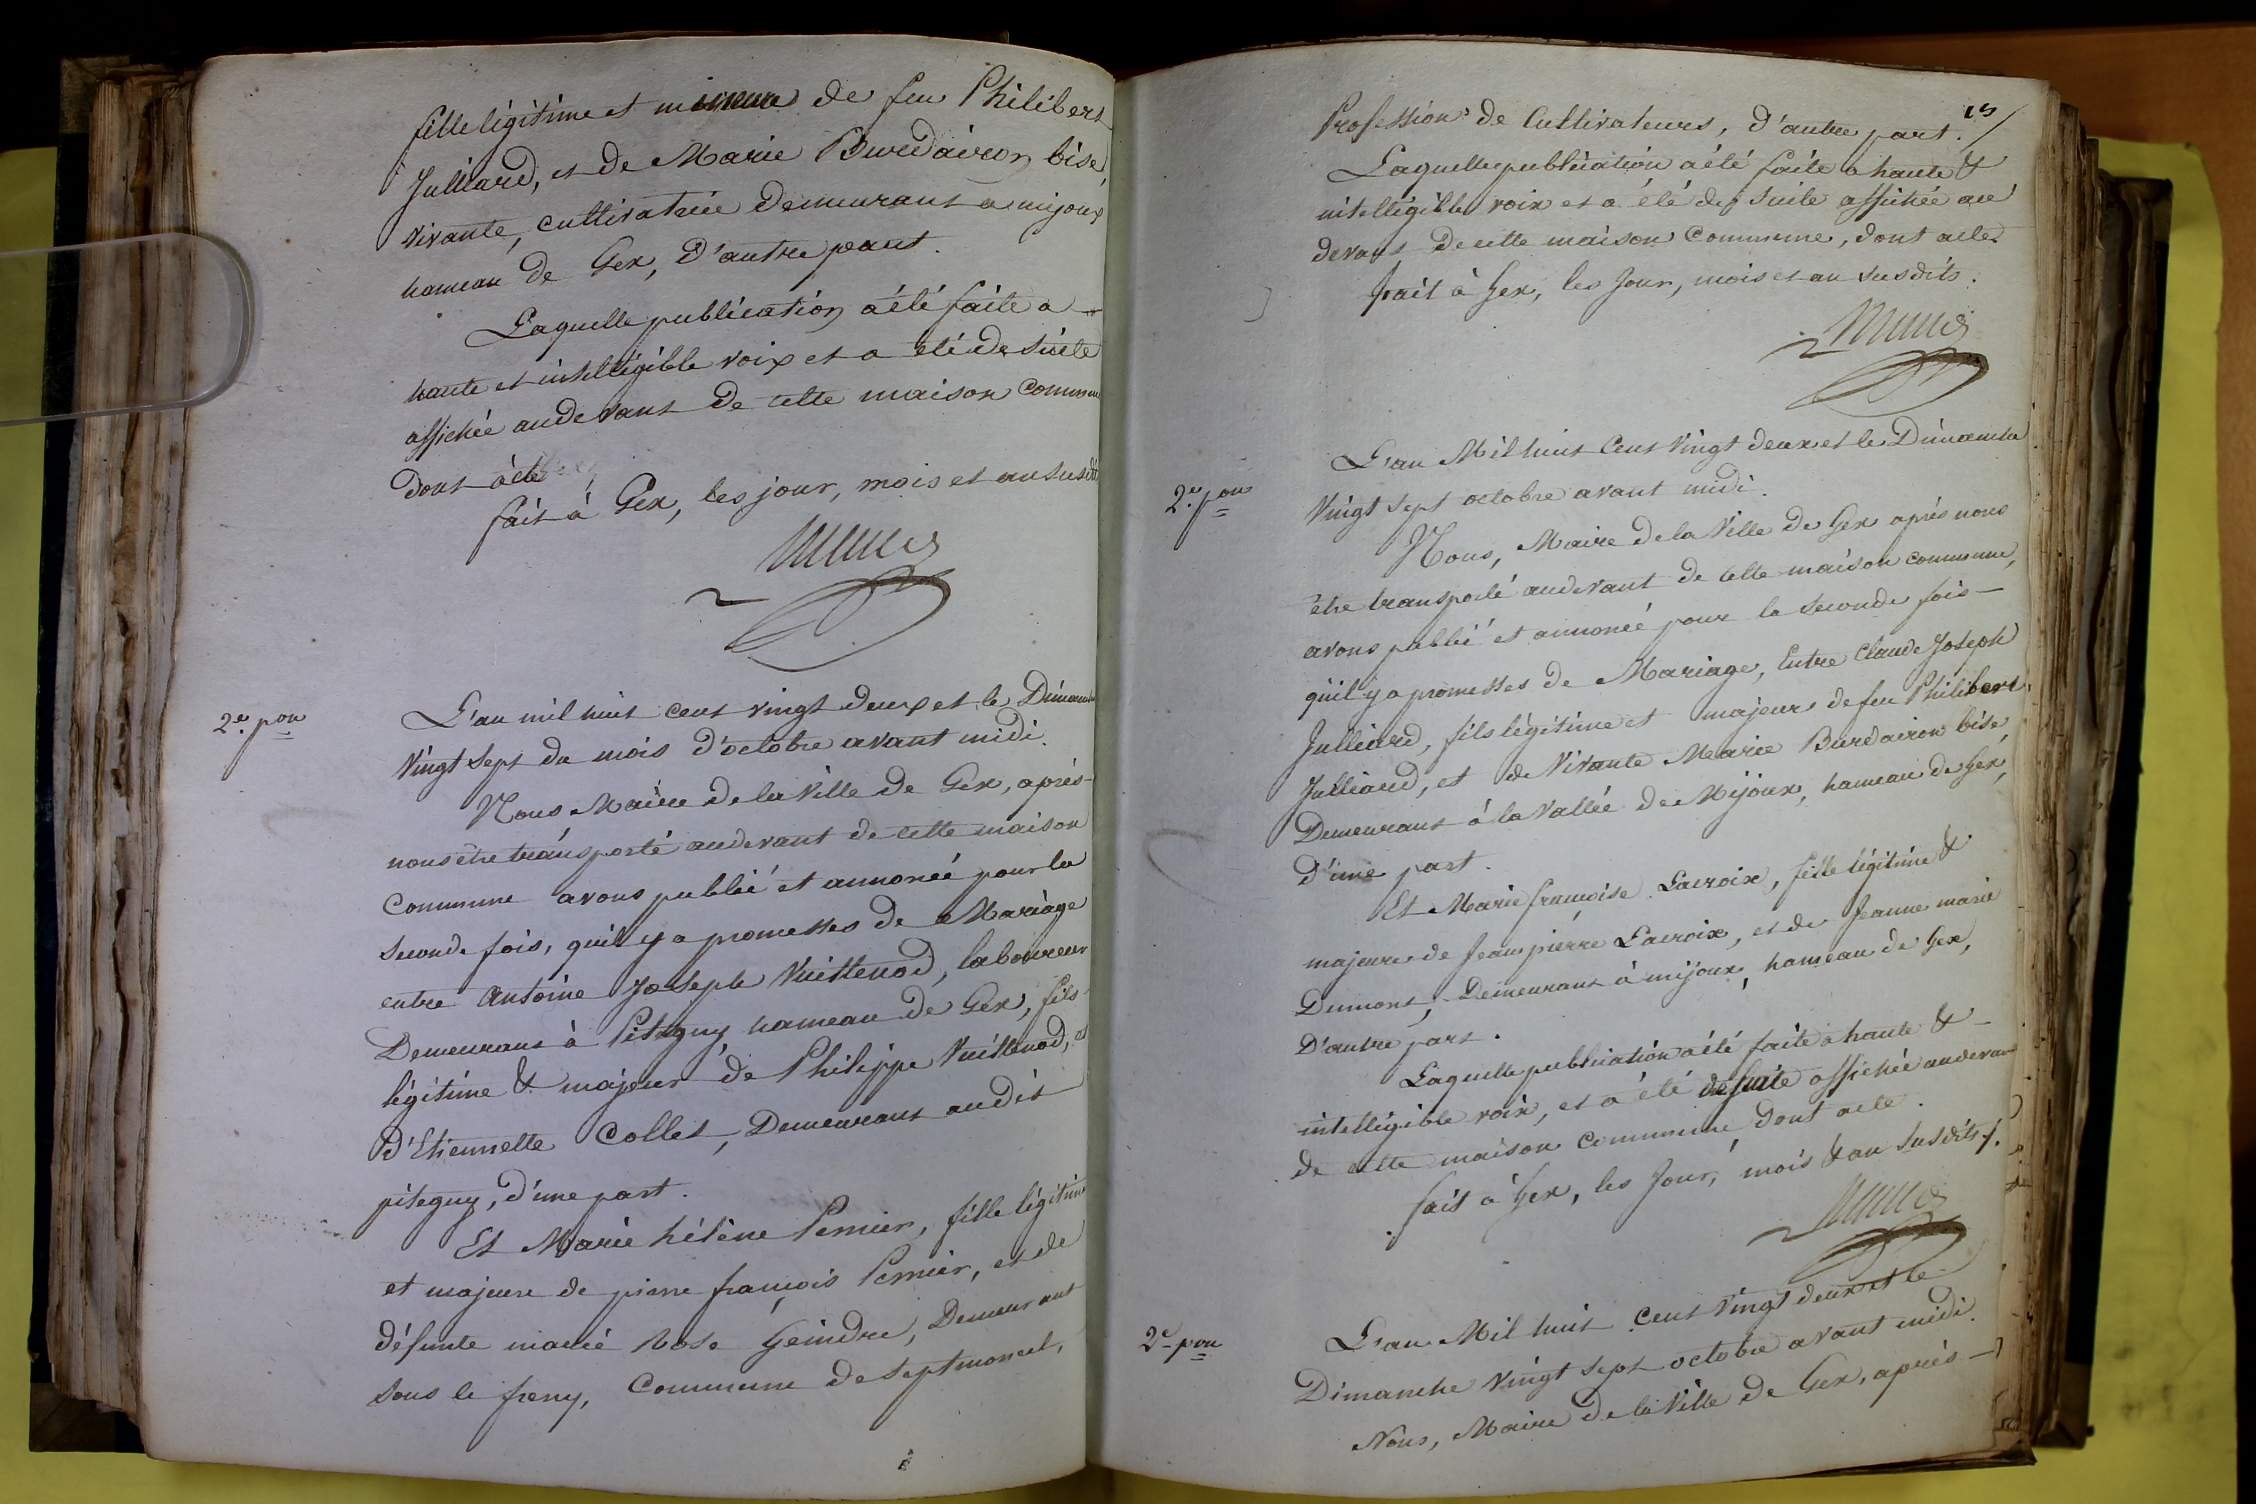 fille légitime et mineure de feu Philibert
Julliard, et de Marie Burdairon bise,
vivante, cultivatrice demeurant a mijoux
hameau de Gex, d'autre part.
Laquelle publication a été faite a
haute et intelligible voix et a été de suite
affichée audevant de cette maison commune
dont acte,
fait à Gex, les jour, mois et an susdits
2.e pon
L'an mil huit cent vingt deux et le Dimanche
vingt sept du mois d'octobre avant midi.
Nous Maire de la Ville de Gex, après
nous être transporté audevant de cette maison
Commune avons publié et annoncé pour la
seconde fois, qu'il y a promesses de Mariage
entre Antoine Joseph Vuillenod, laboureur
Demeurant à Pitegny, hameau de Gex, fils
légitime & majeur de Philippe Vuillenod, et
d'Etiennette Collet, Demeurant audit
pitegny, d'une part.
Et Marie hélène Pernier, fille légitime
et majeure de pierre françois Pernier, et de
défunte marie Rose Geindre, Demeurant
sous le freny, Commune de septmoncel,
13
Profession de Cultivateurs, d'autre part./
Laquelle publication a été faite a haute &
intelligible voix et a été de suite affichée au
devant de cette maison Commune, dont acte.
fait à Gex, les Jour, mois et an susdits.
2.e pon
L'an Mil huit Cent Vingt deux et le Dimanche
Vingt sept octobre avant midi.
Nous, Maire de la Ville de Gex après nous
être transporté audevant de cette maison commune,
avons publié et annoncé pour la seconde fois
qu'il y a promesses de Mariage, Entre Claude Joseph
Julliard, fils légitime et majeur de feu Philibert
Julliard, et de Vivante Marie Burdairon bise,
Demeurant à la Vallée de Mijoux, hameau de Gex,
d'une part.
Et Marie françoise Lacroix, fille légitime &
majeure de Jean pierre Lacroix, et de Jeanne marie
Dumont, Demeurant à mijoux, hameau de Gex,
D'autre part.
Laquelle publication a été faite a haute &
intelligible voix, et a été de suite affichée audevant
de cette maison Commune dont acte.
fait à Gex, les Jour, mois & an susdits./.
2e pon
L'an Mil huit Cent Vingt deux et le
Dimanche Vingt Sept octobre avant midi.
Nous, Maire de la Ville de Gex, après